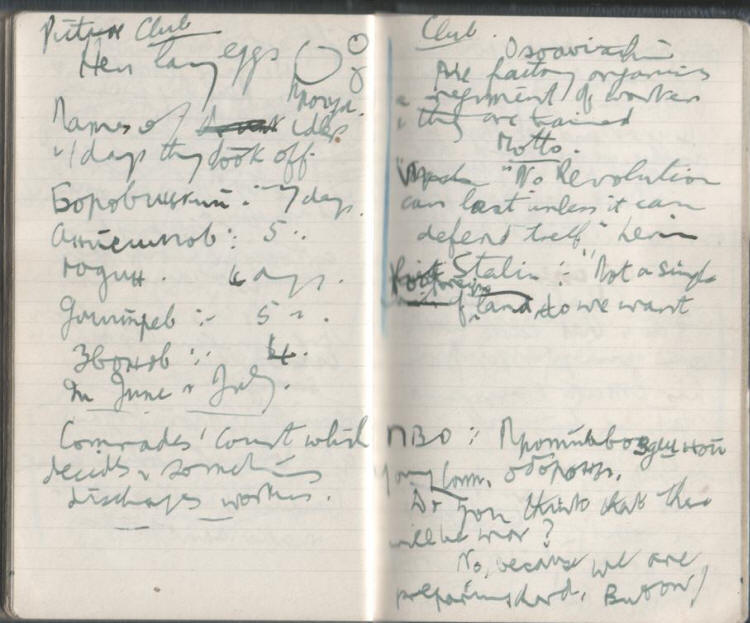 Picture Club
Hen lay eggs
Names of idlers
& days they took off
Боровицкий :- 7 days.
Анисимов :- 5 :-
Юдин . 6 days.
Дмитрев :- 5 ".
Звонов :- 4.
In June & July.
Comrades' Court which
decides & sometimes
discharges workers.
Club.
Osoaviachim
The factory organises
regiment of workers
they are trained
Motto.
"No Revolution
can last unless it can
defend itself" Lenin
Stalin :- "Not a single
foreign land do we want
ПВО :: Противовоздушной
Young Comm. обороны.
Do you think that there
will be war?
No, because we are
preparing hard. But on/